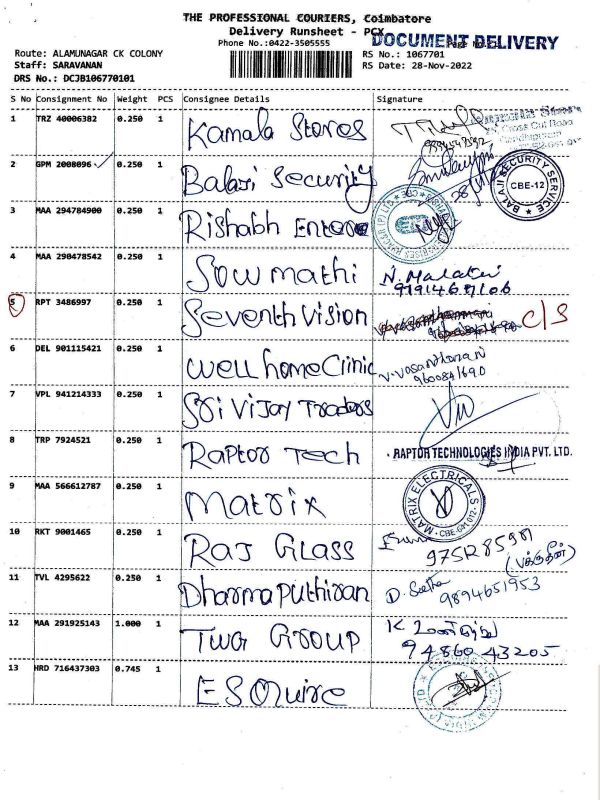 THE PROFESSIONAL COURIERS, Coimbatore
Delivery Runsheet - PCX
DOCUMENT DELIVERY
Phone No.:0422-3505555
Route: ALAMUNAGAR CK COLONY
RS No.: 1067701
Staff: SARAVANAN
RS Date: 28-Nov-2022
DRS No.: DCJB106770101
S No Consignment No Weight PCS Consignee Details Signature
1 TRZ 40006382 0.250 1 Kamala Stores
2 GPM 2008096 0.250 1 Balaji Security
BALAJI SECURITY SERVICE CBE-12
3 MAA 294784900 0.250 1 Rishabh
4 MAA 290478542 0.250 1 Sowmathi N. Malathi
5 RPT 3486997 0.250 1 Seventh Vision C/S
6 DEL 901115421 0.250 1 Well home Clinic V. Vasantha
9600841690
7 VPL 941214333 0.250 1 Sri Vijay Traders
8 TRP 7924521 0.250 1 Raptor Tech RAPTOR TECHNOLOGIES INDIA PVT. LTD.
9 MAA 566612787 0.250 1 Matrix MATRIX ELECTRICALS
10 RKT 9001465 0.250 1 Raj Glass
11 TVL 4295622 0.250 1 Dharmaputhiran D. Seetha
9894651953
12 MAA 291925143 1.000 1 TWG GROUP K
94860 43205
13 HRD 716437303 0.745 1 ESQuire